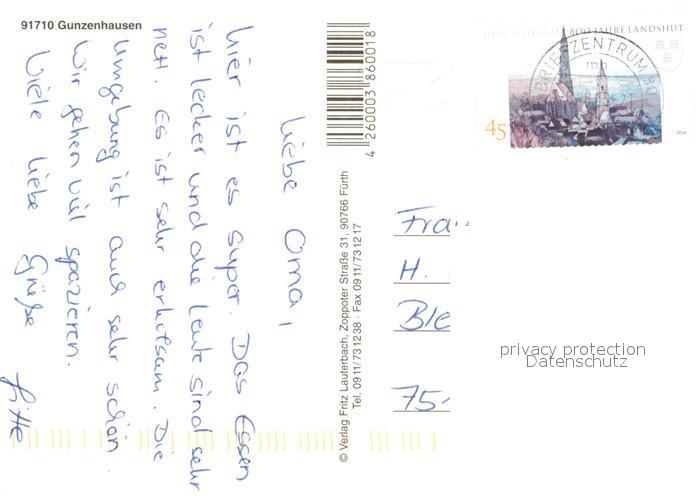 91710 Gunzenhausen
Liebe Oma,
hier ist es super. Das Essen
ist lecker und die Leute sind sehr
nett. Es ist sehr erholsam. Die
Umgebung ist auch sehr schön.
Wir gehen viel spazieren.
Viele liebe Grüße
© Verlag Fritz Lauterbach, Zoppoter Straße 31, 90766 Fürth
Tel. 0911/731238 · Fax 0911/731217
4 260003 860018
DEUTSCHLAND 800 JAHRE LANDSHUT
45
2004
BRIEFZENTRUM 90
mb
Frau
H.
Ble
75
privacy protection
Datenschutz